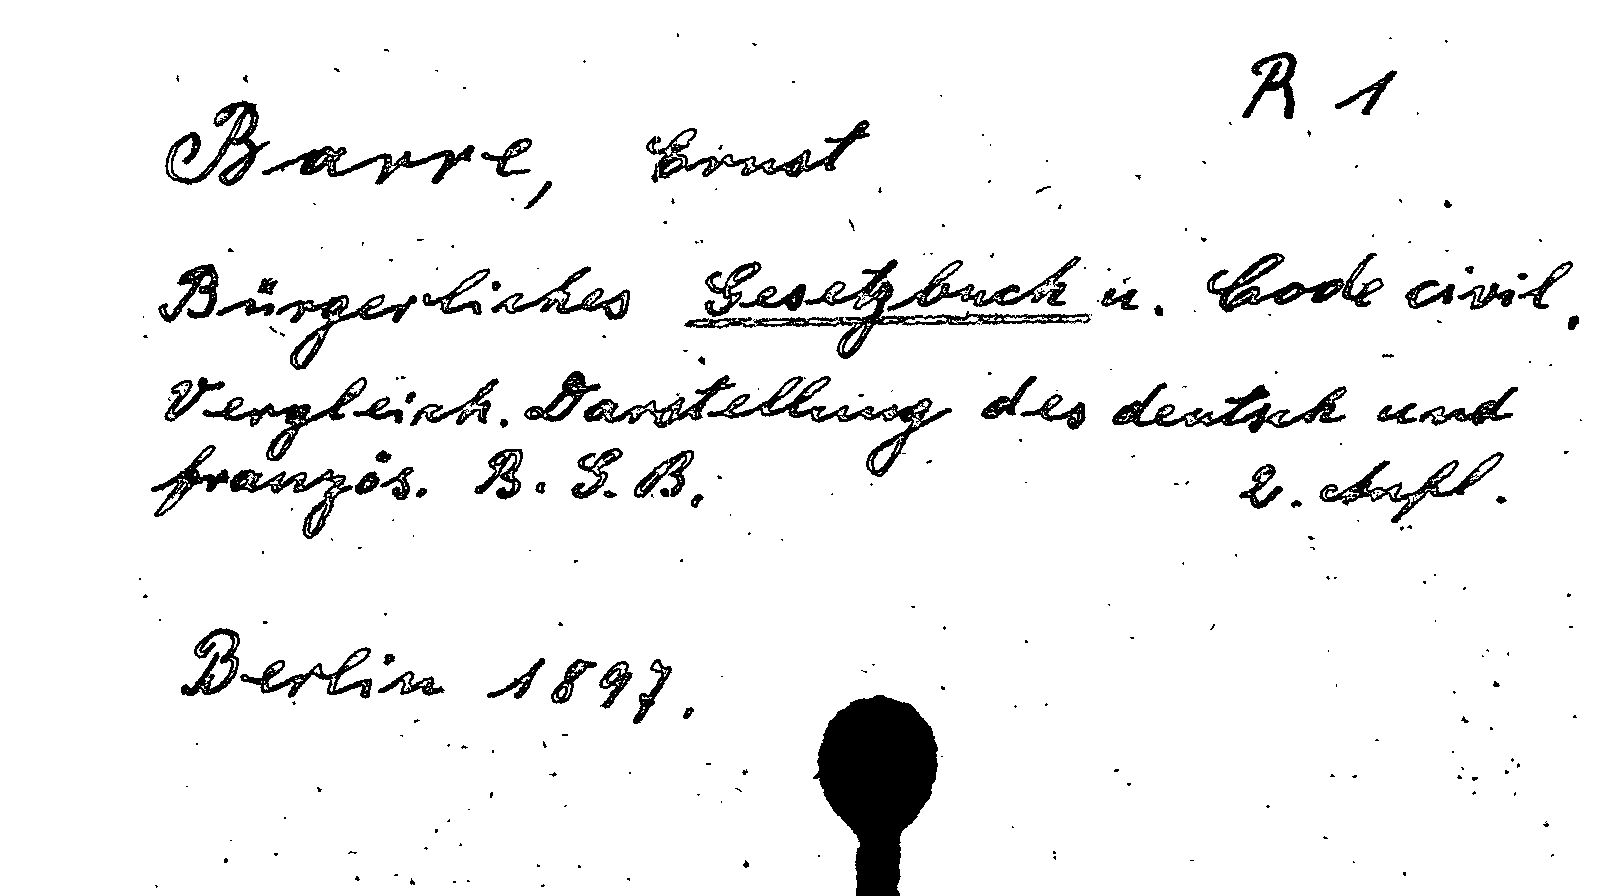 R 1
Barre, Ernst
Bürgerliches Gesetzbuch u. Code civil.
Vergleich. Darstellung des deutsch und
französ. B. G. B. 2. Aufl.
Berlin 1897.